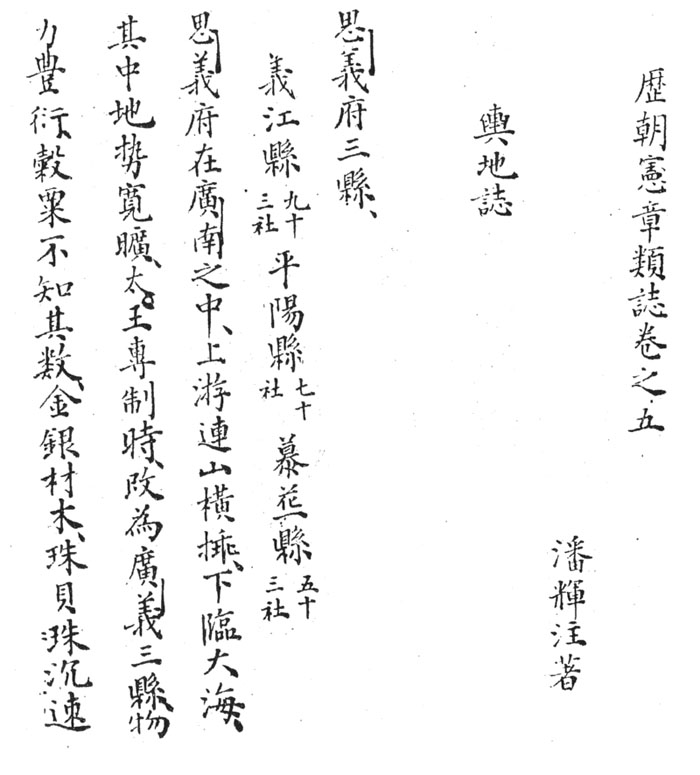 歷朝憲章類誌卷之五
潘輝注著
輿地誌
思義府三縣、
義江縣九十三社平陽縣七十社慕花縣五十三社
思義府在廣南之中、上游連山橫排、下臨大海、
其中地势寬曠、太王專制時、改為廣義三縣、物
力豊衍、穀粟不知其数、金銀材木、珠貝珠沉速